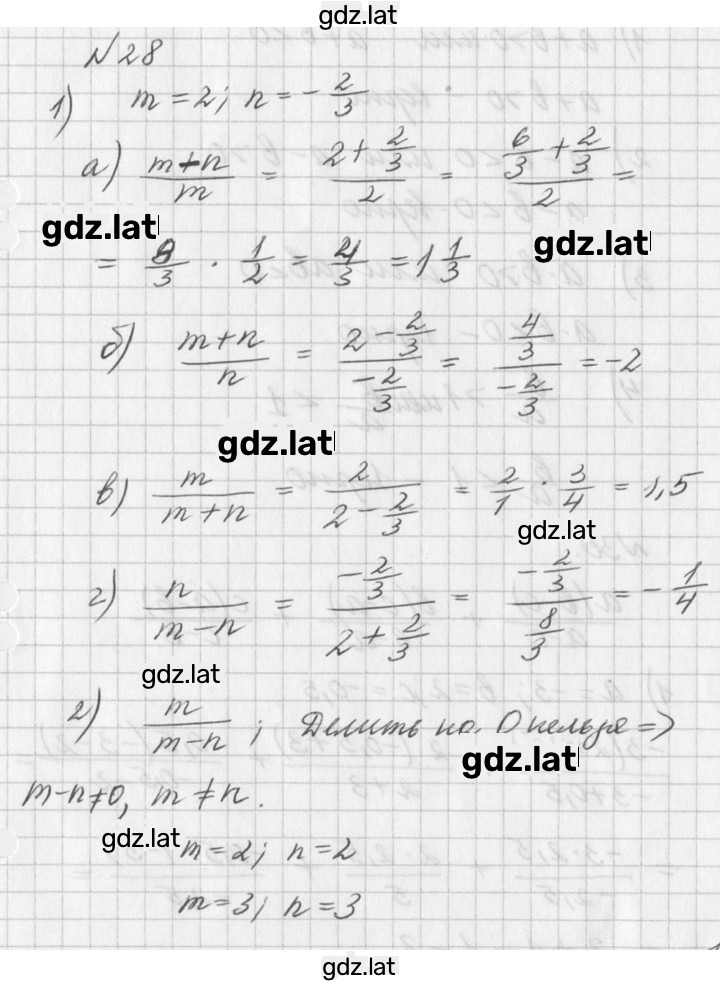 gdz.lat
№28
1) m = 2; n = -2/3
а) (m-n)/m = (2 + 2/3)/2 = (6/3 + 2/3)/2 =
gdz.lat
gdz.lat
= 8/3 · 1/2 = 4/3 = 1 1/3
б) (m+n)/n = (2 - 2/3)/(-2/3) = (4/3)/(-2/3) = -2
gdz.lat
в) m/(m+n) = 2/(2 - 2/3) = 2/1 · 3/4 = 1,5
gdz.lat
г) n/(m-n) = (-2/3)/(2 + 2/3) = (-2/3)/(8/3) = -1/4
gdz.lat
2) m/(m-n); Делить на 0 нельзя =>
gdz.lat
m-n≠0, m ≠ n.
gdz.lat
m=2; n=2
m=3; n=3
gdz.lat